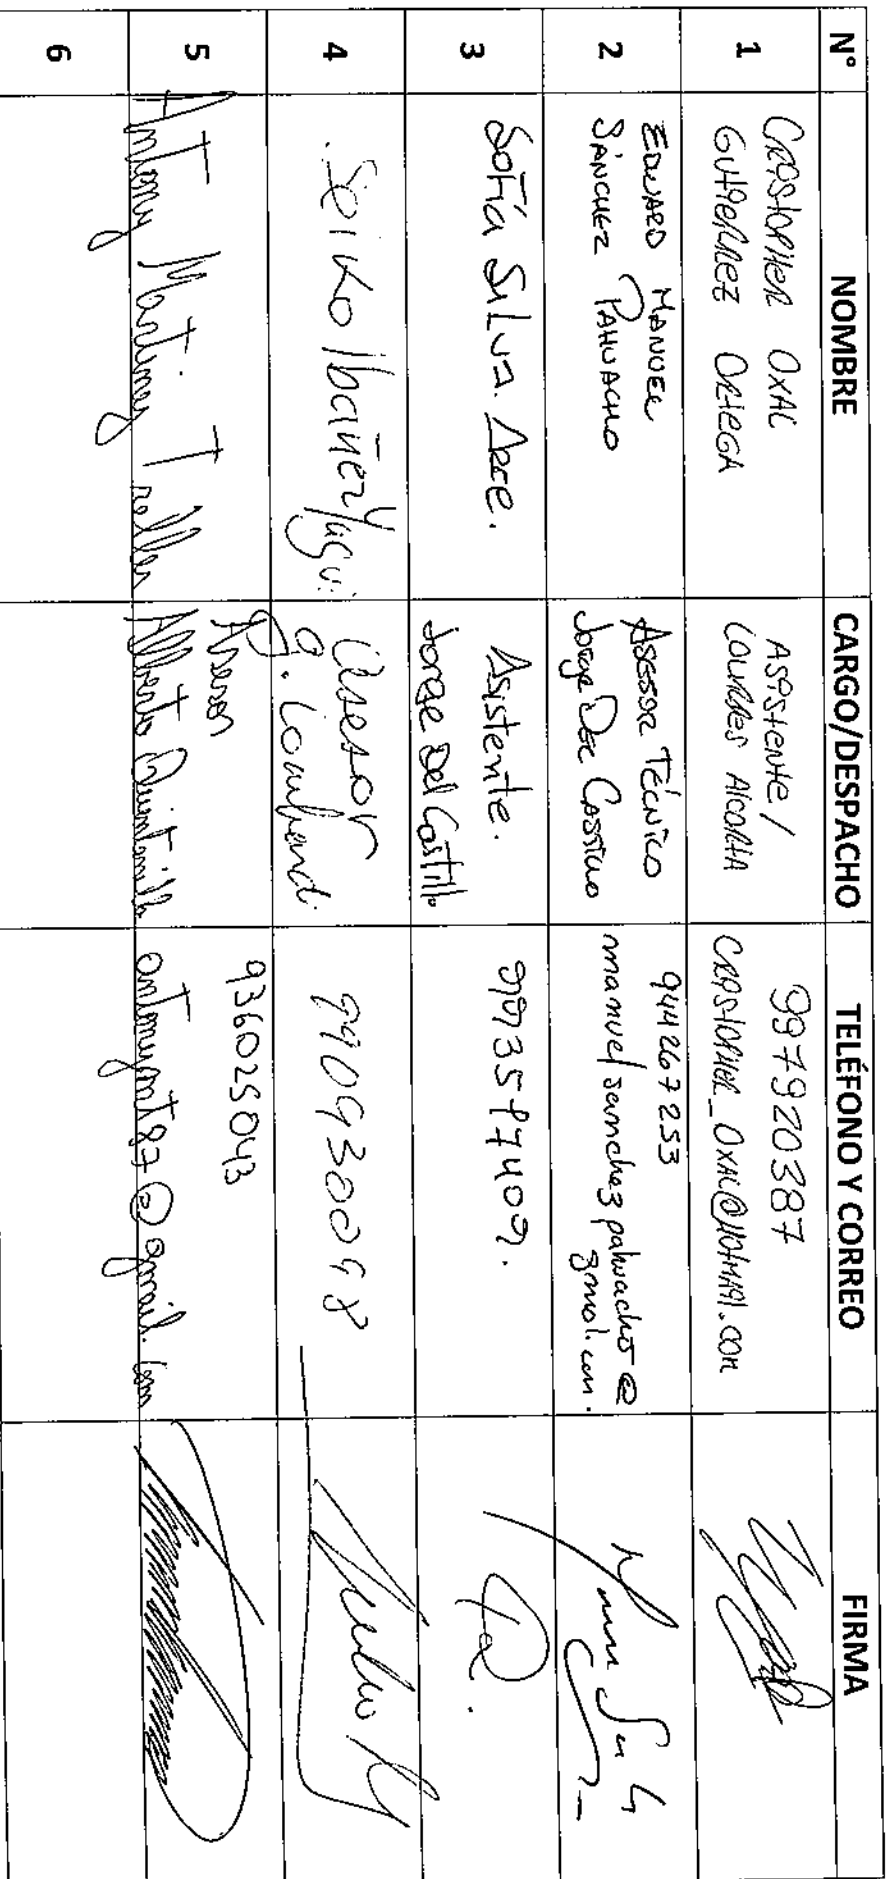 N° NOMBRE CARGO/DESPACHO TELÉFONO Y CORREO FIRMA
1
CRISTOPHER OXAL
GUTIERREZ ORTEGA
ASISTENTE /
LOURDES ALCORTA
997920387
CRISTOPHER_OXAL@HOTMAIL.COM
2
EDWARD MANUEL
SÁNCHEZ PAHUACHO
ASESOR TÉCNICO
JORGE DEL CASTILLO
944267253
manuelsanchezpahuacho@
gmail.com.
3
Sofía Silva. Arce.
Asistente.
Jorge Del Castillo
4
Seiko Ibañez Yagui
Asesor
G. Lombardi
5
Antony Martinez Trelles
Asesor
Alberto Quintanilla
936025043
antonymt87@gmail.com
6